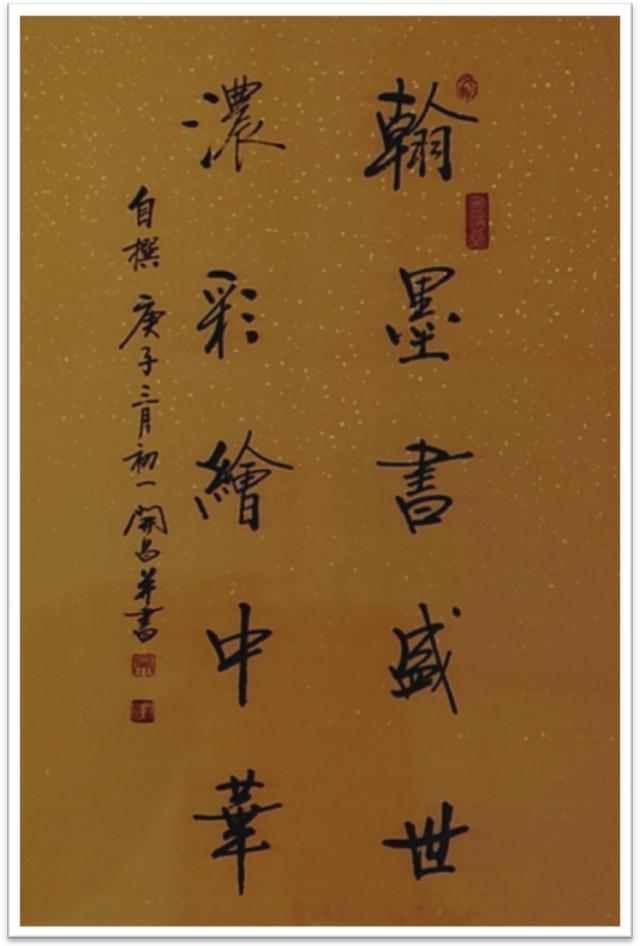 翰墨書盛世
濃彩繪中華
自撰 庚子三月初一 開昌並書